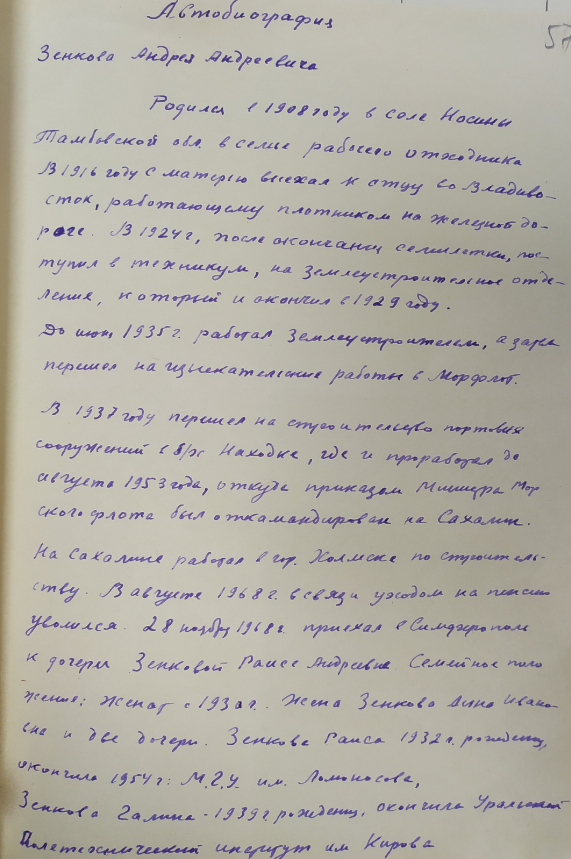 Автобиография
57
Зенкова Андрея Андреевича
Родился в 1908 году в селе Носины
Тамбовской обл. в семье рабочего отходника
В 1916 году с матерью выехал к отцу во Владиво-
сток, работающему плотником на железной до-
роге. В 1924 г, после окончания семилетки, пос-
тупил в техникум, на землеустроительное отде-
ления, который и окончил в 1929 году.
До июня 1935 г. работал землеустроителем, а затем
перешел на изыскательские работы в Морфлот.
В 1937 году перешел на строительство портовых
сооружений в б/х Находке, где и проработал до
августа 1953 года, откуда приказом Министра Мор
ского флота был откамандирован на Сахалин.
На Сахалине работал в гор. Холмске по строитель-
ству. В августе 1968 г. в связи уходом на пенсию
уволился. 28 ноября 1968 г. приехал в Симферополь
к дочери Зенковой Раисе Андреевне Семейное поло
жение: женат с 1930 г. Жена Зенкова Анна Ивано-
вна и две дочери. Зенкова Раиса 1932 г. рождения,
окончила 1954 г: М.Г.У. им. Ломоносова,
Зенкова Галина - 1939 г рождения, окончила Уральский
Политехнический институт им Кирова